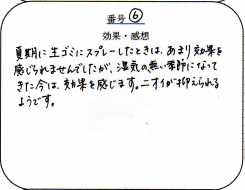 番号 ⑥
効果・感想
夏期に生ゴミにスプレーしたときは、あまり効果を
感じられませんでしたが、湿気の無い季節になって
きた今は、効果を感じます。ニオイが抑えられる
ようです。